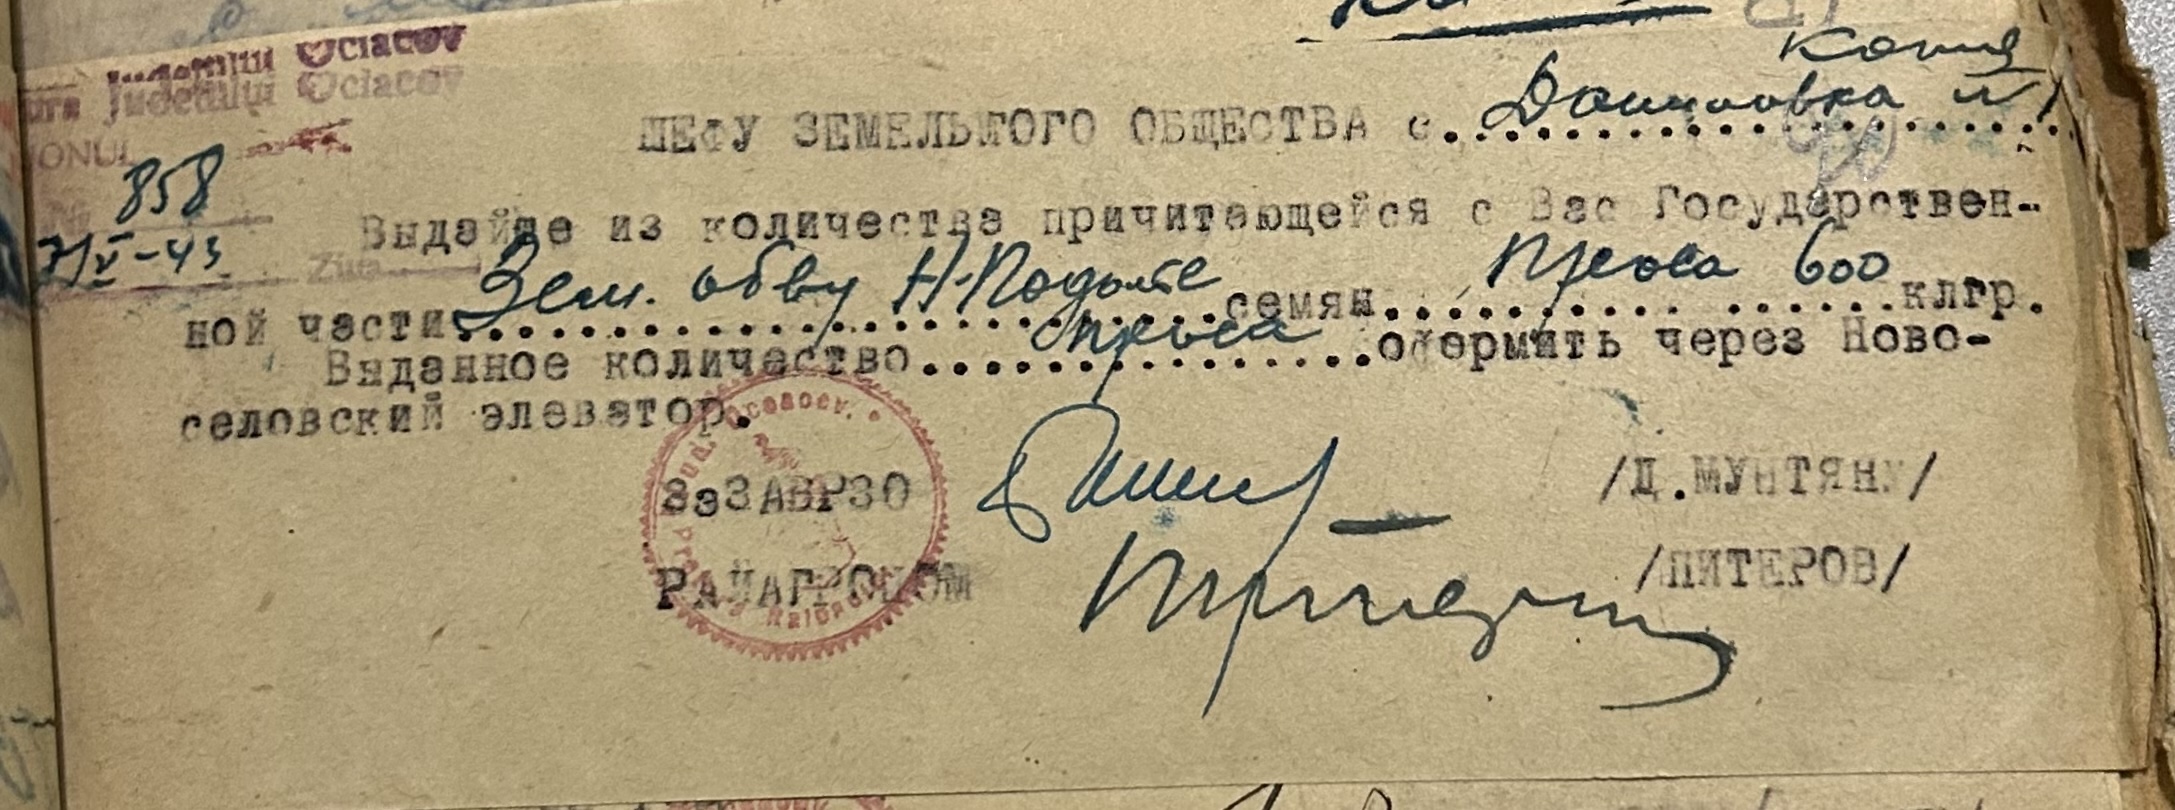 Judetului Ociacov
Judetului Ociacov
Копия
ШЕФУ ЗЕМЕЛЬНОГО ОБЩЕСТВА с. Даниловка №1
858
7/V-43
Ziua
Выдайте из количества причитающейся с Вас Государствен-
ной части Зем. об-ву Н-Подоле семян проса 600 клгр.
Выданное количество проса оформить через Ново-
селовский элеватор.
ЗаЗАВРЗО /Д.МУНТЯНУ/
РАЙАГРОНОМ /ПИТЕРОВ/